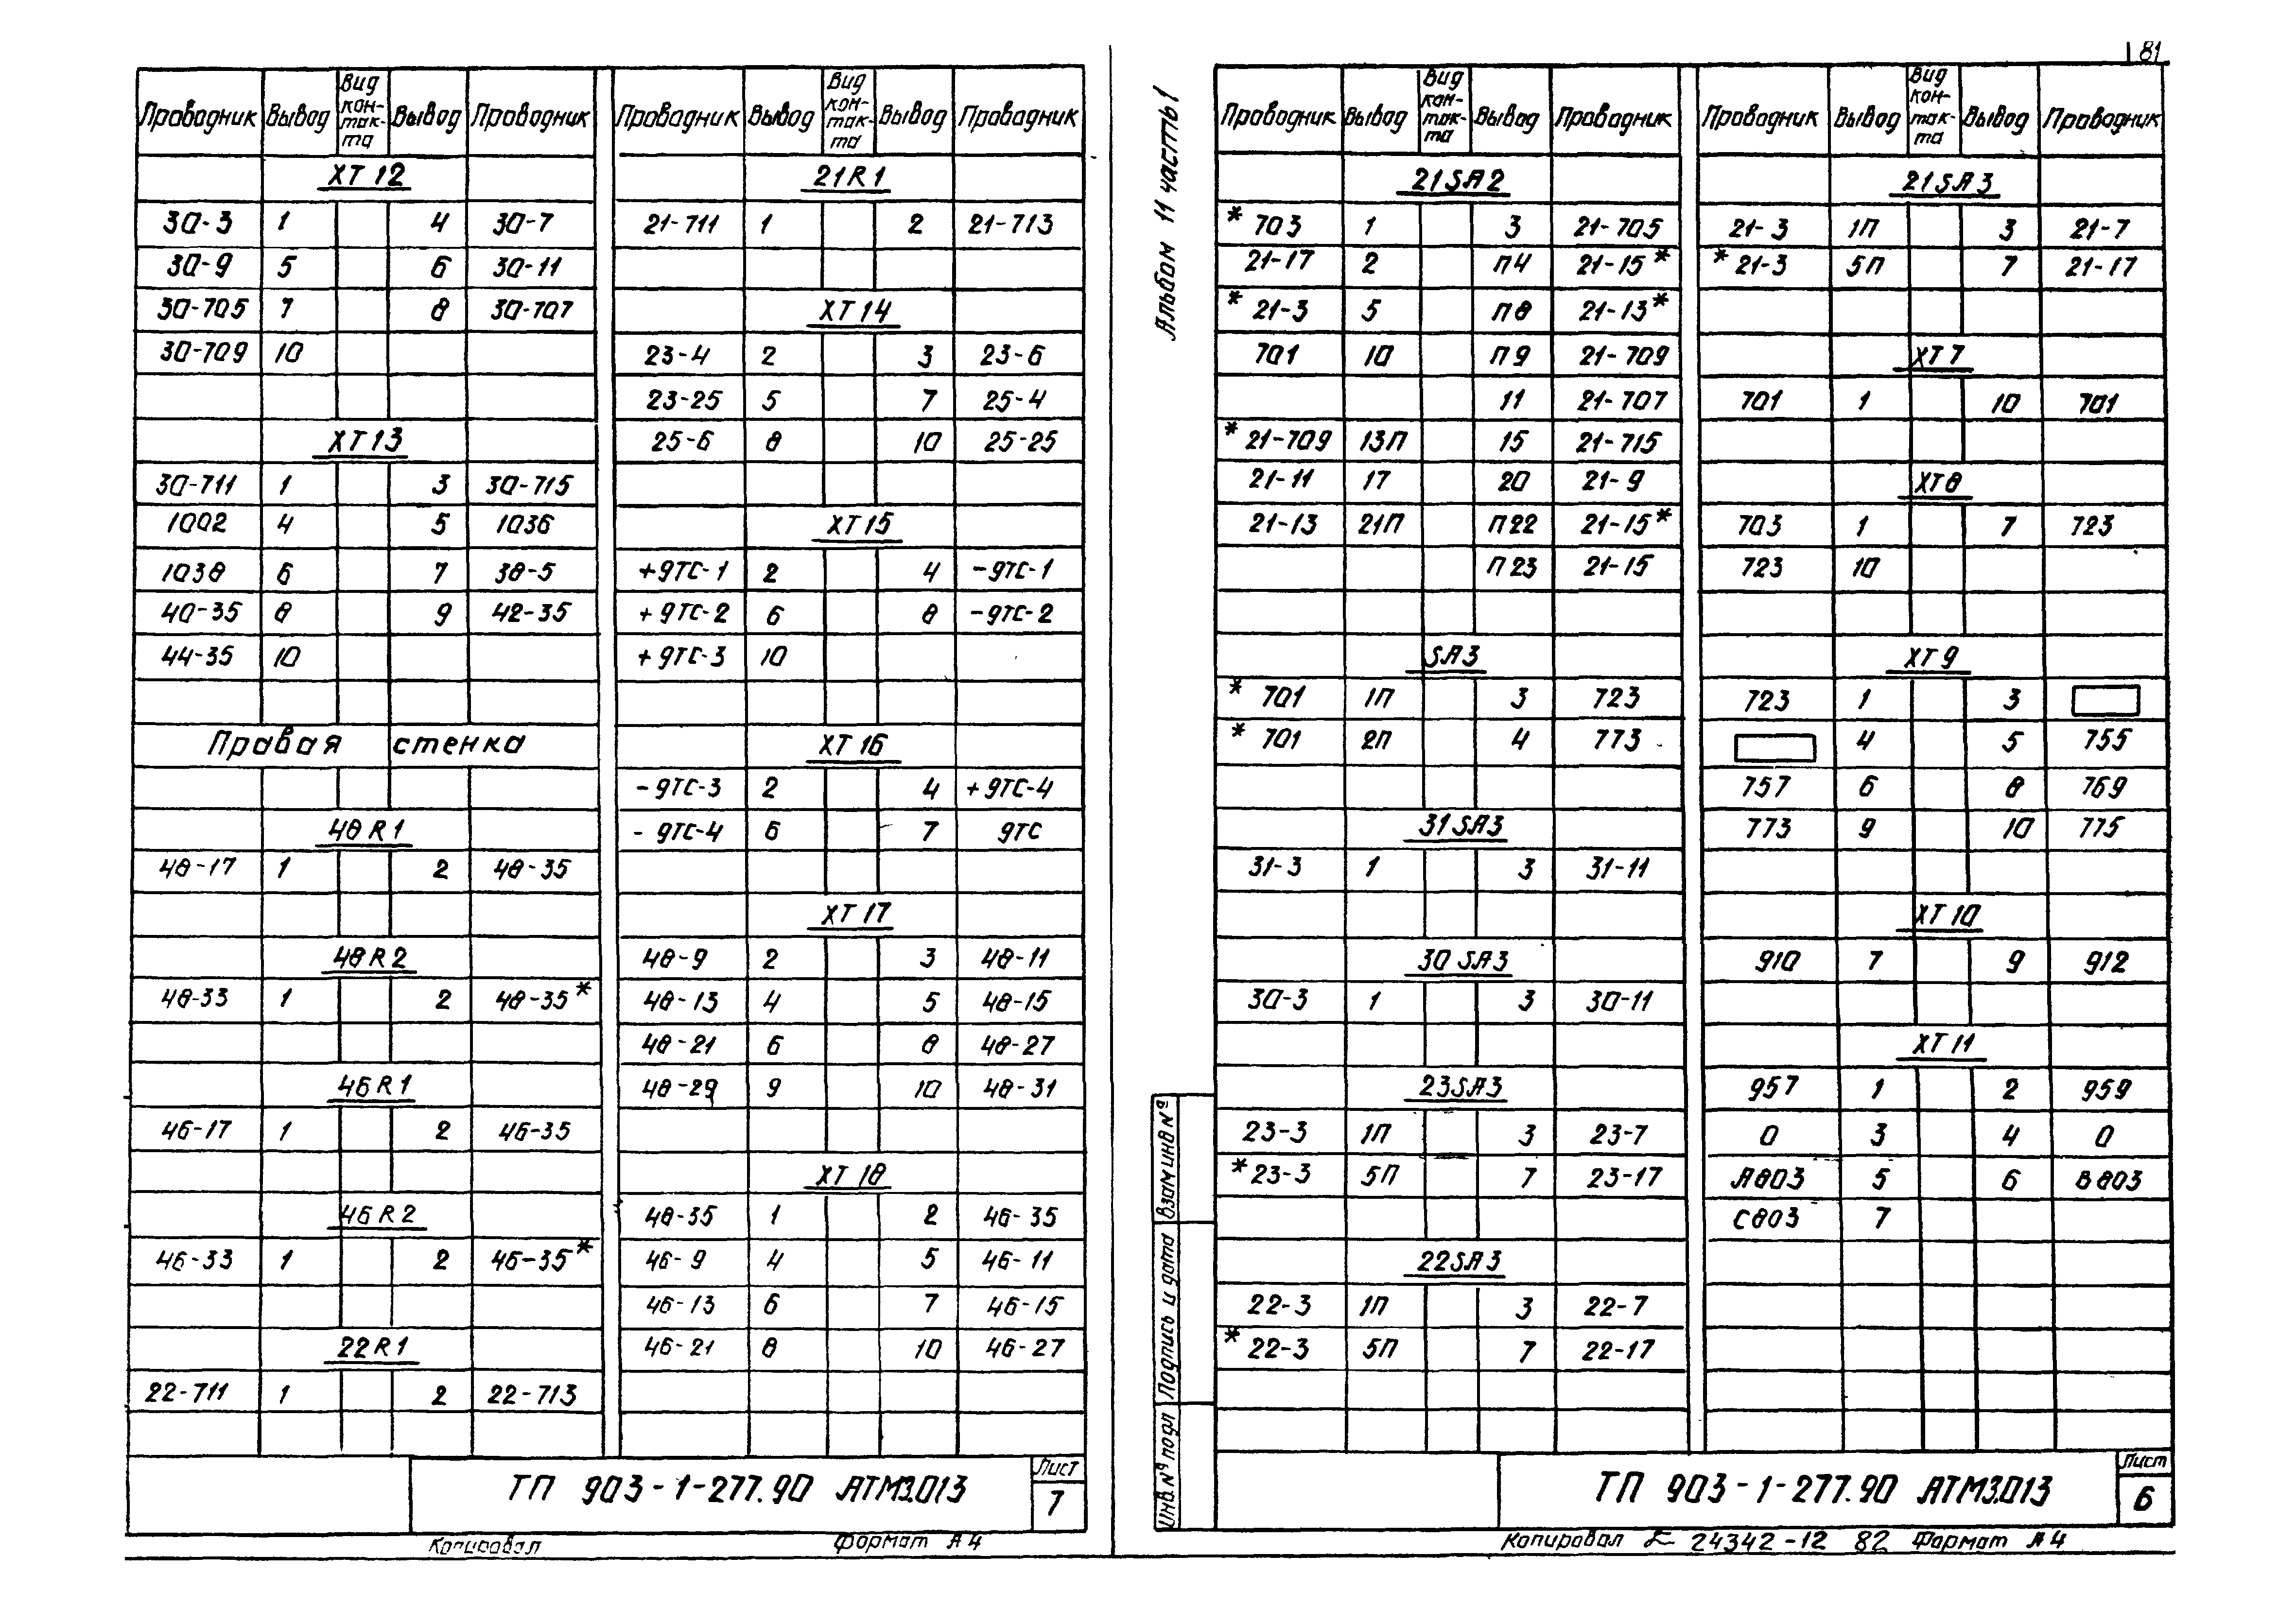 81
Проводник Вывод Вид кон-так-та Вывод Проводник Проводник Вывод Вид кон-так-та Вывод Проводник
XT12 21R1
30-3 1 4 30-7 21-711 1 2 21-713
30-9 5 6 30-11
30-705 7 8 30-707 XT14
30-709 10 23-4 2 3 23-6
23-25 5 7 25-4
XT13 25-6 8 10 25-25
30-711 1 3 30-715
1002 4 5 1036 XT15
1038 6 7 38-5 +9ТС-1 2 4 -9ТС-1
40-35 8 9 42-35 +9ТС-2 6 8 -9ТС-2
44-35 10 +9ТС-3 10
Правая стенка XT16
-9ТС-3 2 4 +9ТС-4
48R1 -9ТС-4 6 7 9ТС
48-17 1 2 48-35
XT17
48R2 48-9 2 3 48-11
48-33 1 2 48-35* 48-13 4 5 48-15
48-21 6 8 48-27
46R1 48-29 9 10 48-31
46-17 1 2 46-35
XT18
46R2 48-35 1 2 46-35
46-33 1 2 46-35* 46-9 4 5 46-11
46-13 6 7 46-15
22R1 46-21 8 10 46-27
22-711 1 2 22-713
ТП 903-1-277.90 АТМ3.013 Лист 7
Копировал Формат А4
Альбом 11 часть 1
Проводник Вывод Вид кон-так-та Вывод Проводник Проводник Вывод Вид кон-так-та Вывод Проводник
21SA2 21SA3
*703 1 3 21-705 21-3 1П 3 21-7
21-17 2 П4 21-15* *21-3 5П 7 21-17
*21-3 5 П8 21-13*
701 10 П9 21-709 XT7
11 21-707 701 1 10 701
*21-709 13П 15 21-715
21-11 17 20 21-9 XT8
21-13 21П П22 21-15* 703 1 7 723
П23 21-15 723 10
SA3 XT9
*701 1П 3 723 723 1 3
*701 2П 4 773 4 5 755
757 6 8 769
31SA3 773 9 10 775
31-3 1 3 31-11
XT10
30SA3 910 7 9 912
30-3 1 3 30-11
XT11
23SA3 957 1 2 959
23-3 1П 3 23-7 0 3 4 0
*23-3 5П 7 23-17 А803 5 6 В803
С803 7
22SA3
22-3 1П 3 22-7
*22-3 5П 7 22-17
Инв.№ подл Подпись и дата Взам инв №
ТП 903-1-277.90 АТМ3.013 Лист 6
Копировал 24342-12 82 Формат А4